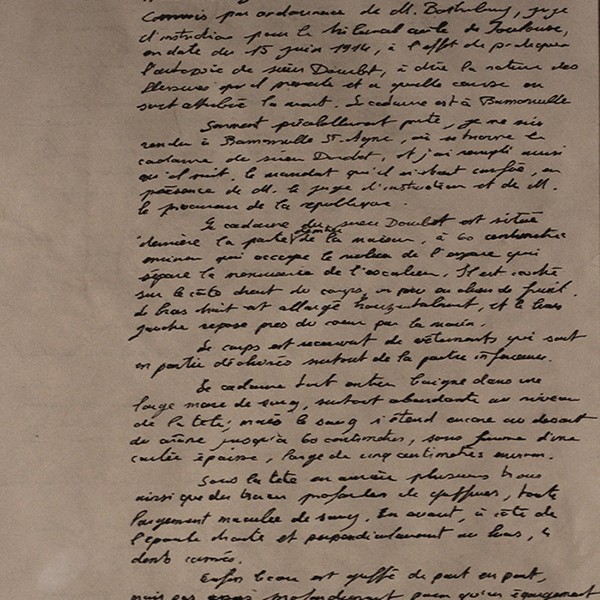 Commis par ordonnance de M. Bostenburg, juge
d'instruction pour le tribunal civile de Toulouse,
en date du 15 juin 1914, à l'effet de pratiquer
l'autopsie de sieur Doudet, à dire la nature des
blessures qu'il presente et a quelle cause en
soit attribuée la mort. Le cadavre est à
Serment préalablement prêté, je me suis
rendu à St. Agne, où se trouve le
cadavre de sieur Doudet, et j'ai rempli ainsi
qu'il suit, le mandat qu'il m'etait confié, en
présence de M. le juge d'instruction et de M.
le procureur de la republique.
Le cadavre du sieur Doudet est située
derrière la porte d'entrée de la maison, à 60 centimetres
environ qui occupe le milieu de l'espace qui
sépare la menuiserie de l'escalier. Il est couché
sur le côté droit du corps, un peu en chien de fusil.
Le bras droit est allongé horizontalement, et le bras
gauche repose pres du coeur par la main.
Le corps est recouvert de vêtements qui sont
en partie déchirés surtout de la partie inferieure.
Le cadavre tout entier baigne dans une
large mare de sang, surtout abondante au niveau
de la tête; mais le sang s'étend encore au dessous
du crâne jusqu'à 60 centimetres, sous forme d'une
coulée épaisse, large de cinq centimetres environ.
Sous la tete en arrière plusieurs trous
ainsi que des traces profondes de griffures, toute
largement maculée de sang. En avant, à côté de
l'épaule droite et perpendiculairement au bras, 4
dents carrées.
Enfin le cou est griffé de part en part,
mais pas profondement